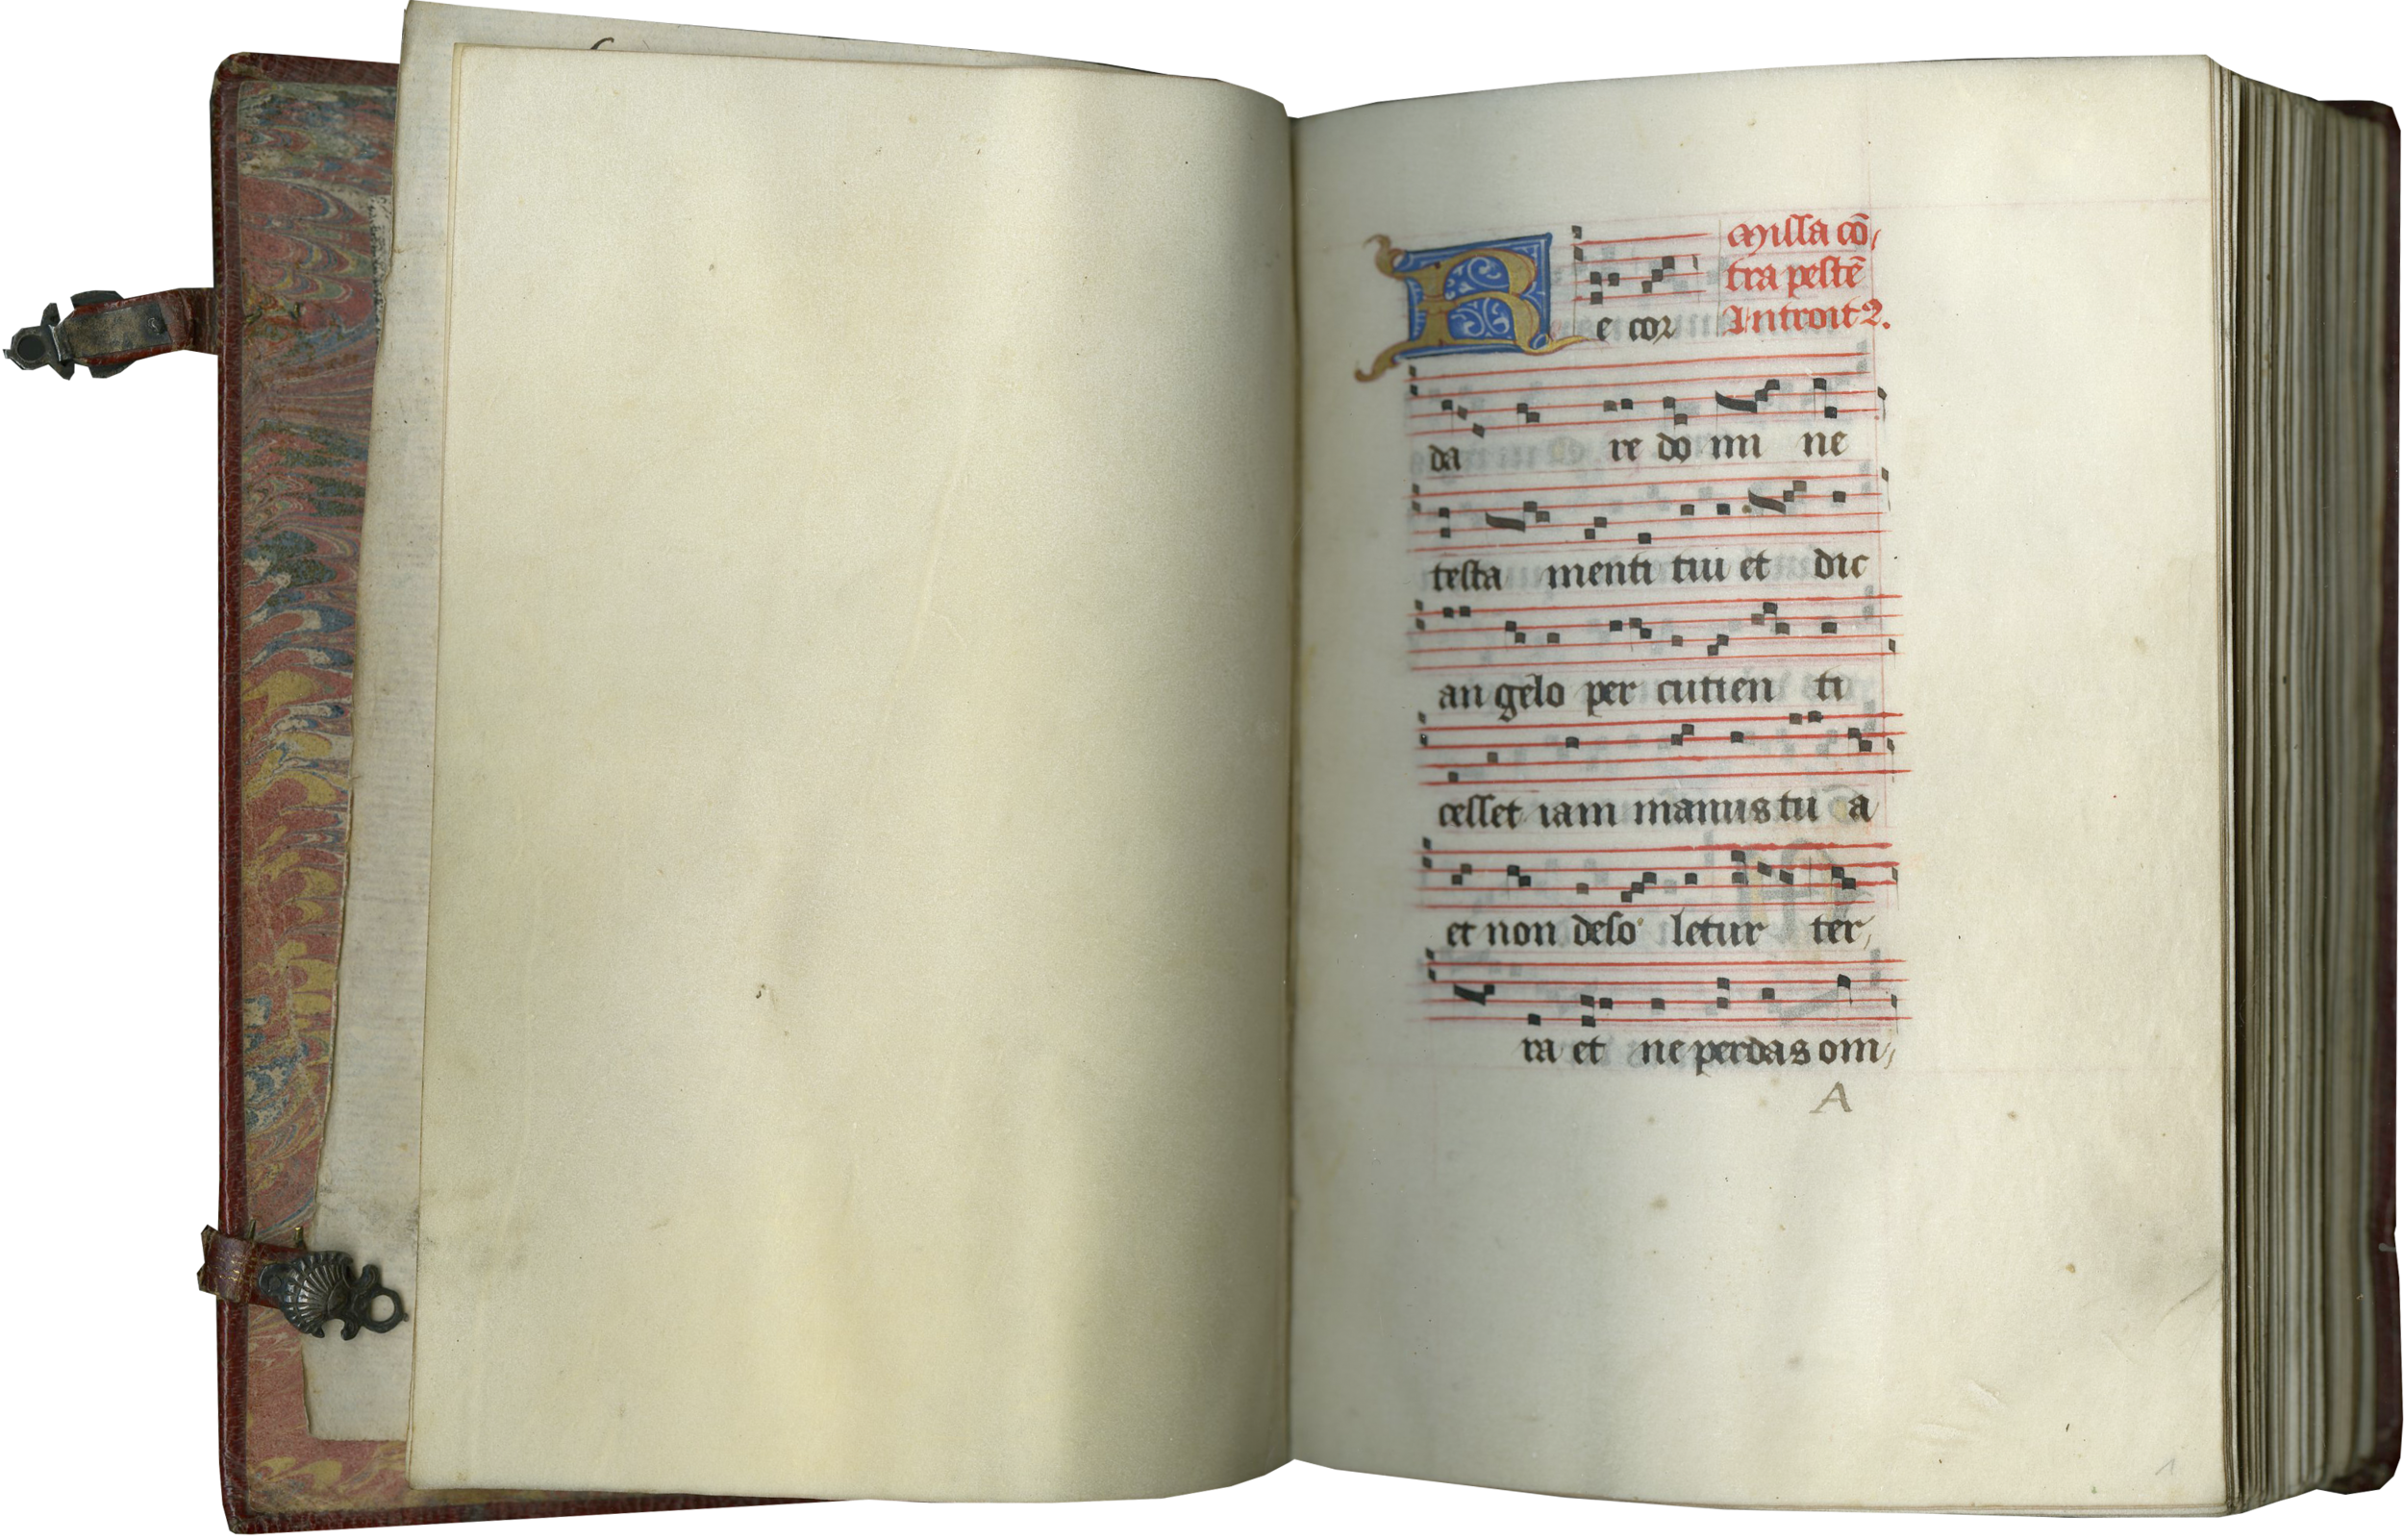 Missa cō,
tra pestē
Introit2.
R e cor
da re do mi ne
testa menti tui et dic
an gelo per cutien ti
cesset iam manus tu a
et non deso letur ter,
ra et ne perdas om,
A
1